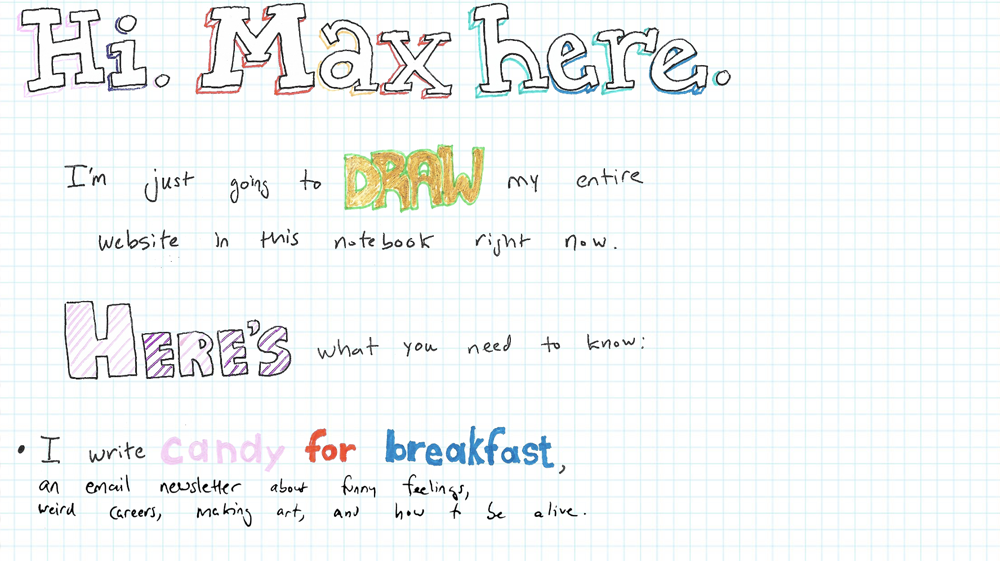 Hi. Max here.
I'm just going to DRAW my entire
website in this notebook right now.
HERE'S what you need to know:
• I write candy for breakfast,
an email newsletter about funny feelings,
weird careers, making art, and how to be alive.